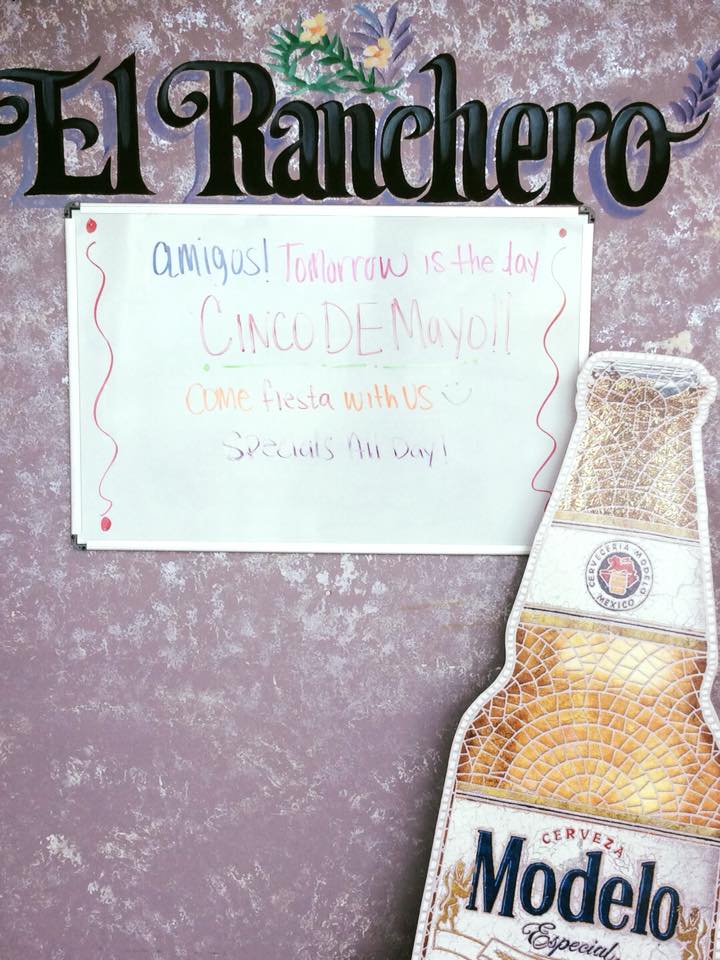 El Ranchero
amigos! Tomorrow is the day
CINCO DE Mayo!!
come fiesta with us
Specials All Day!
CERVECERIA MODELO
MEXICO
CERVEZA
Modelo
Especial